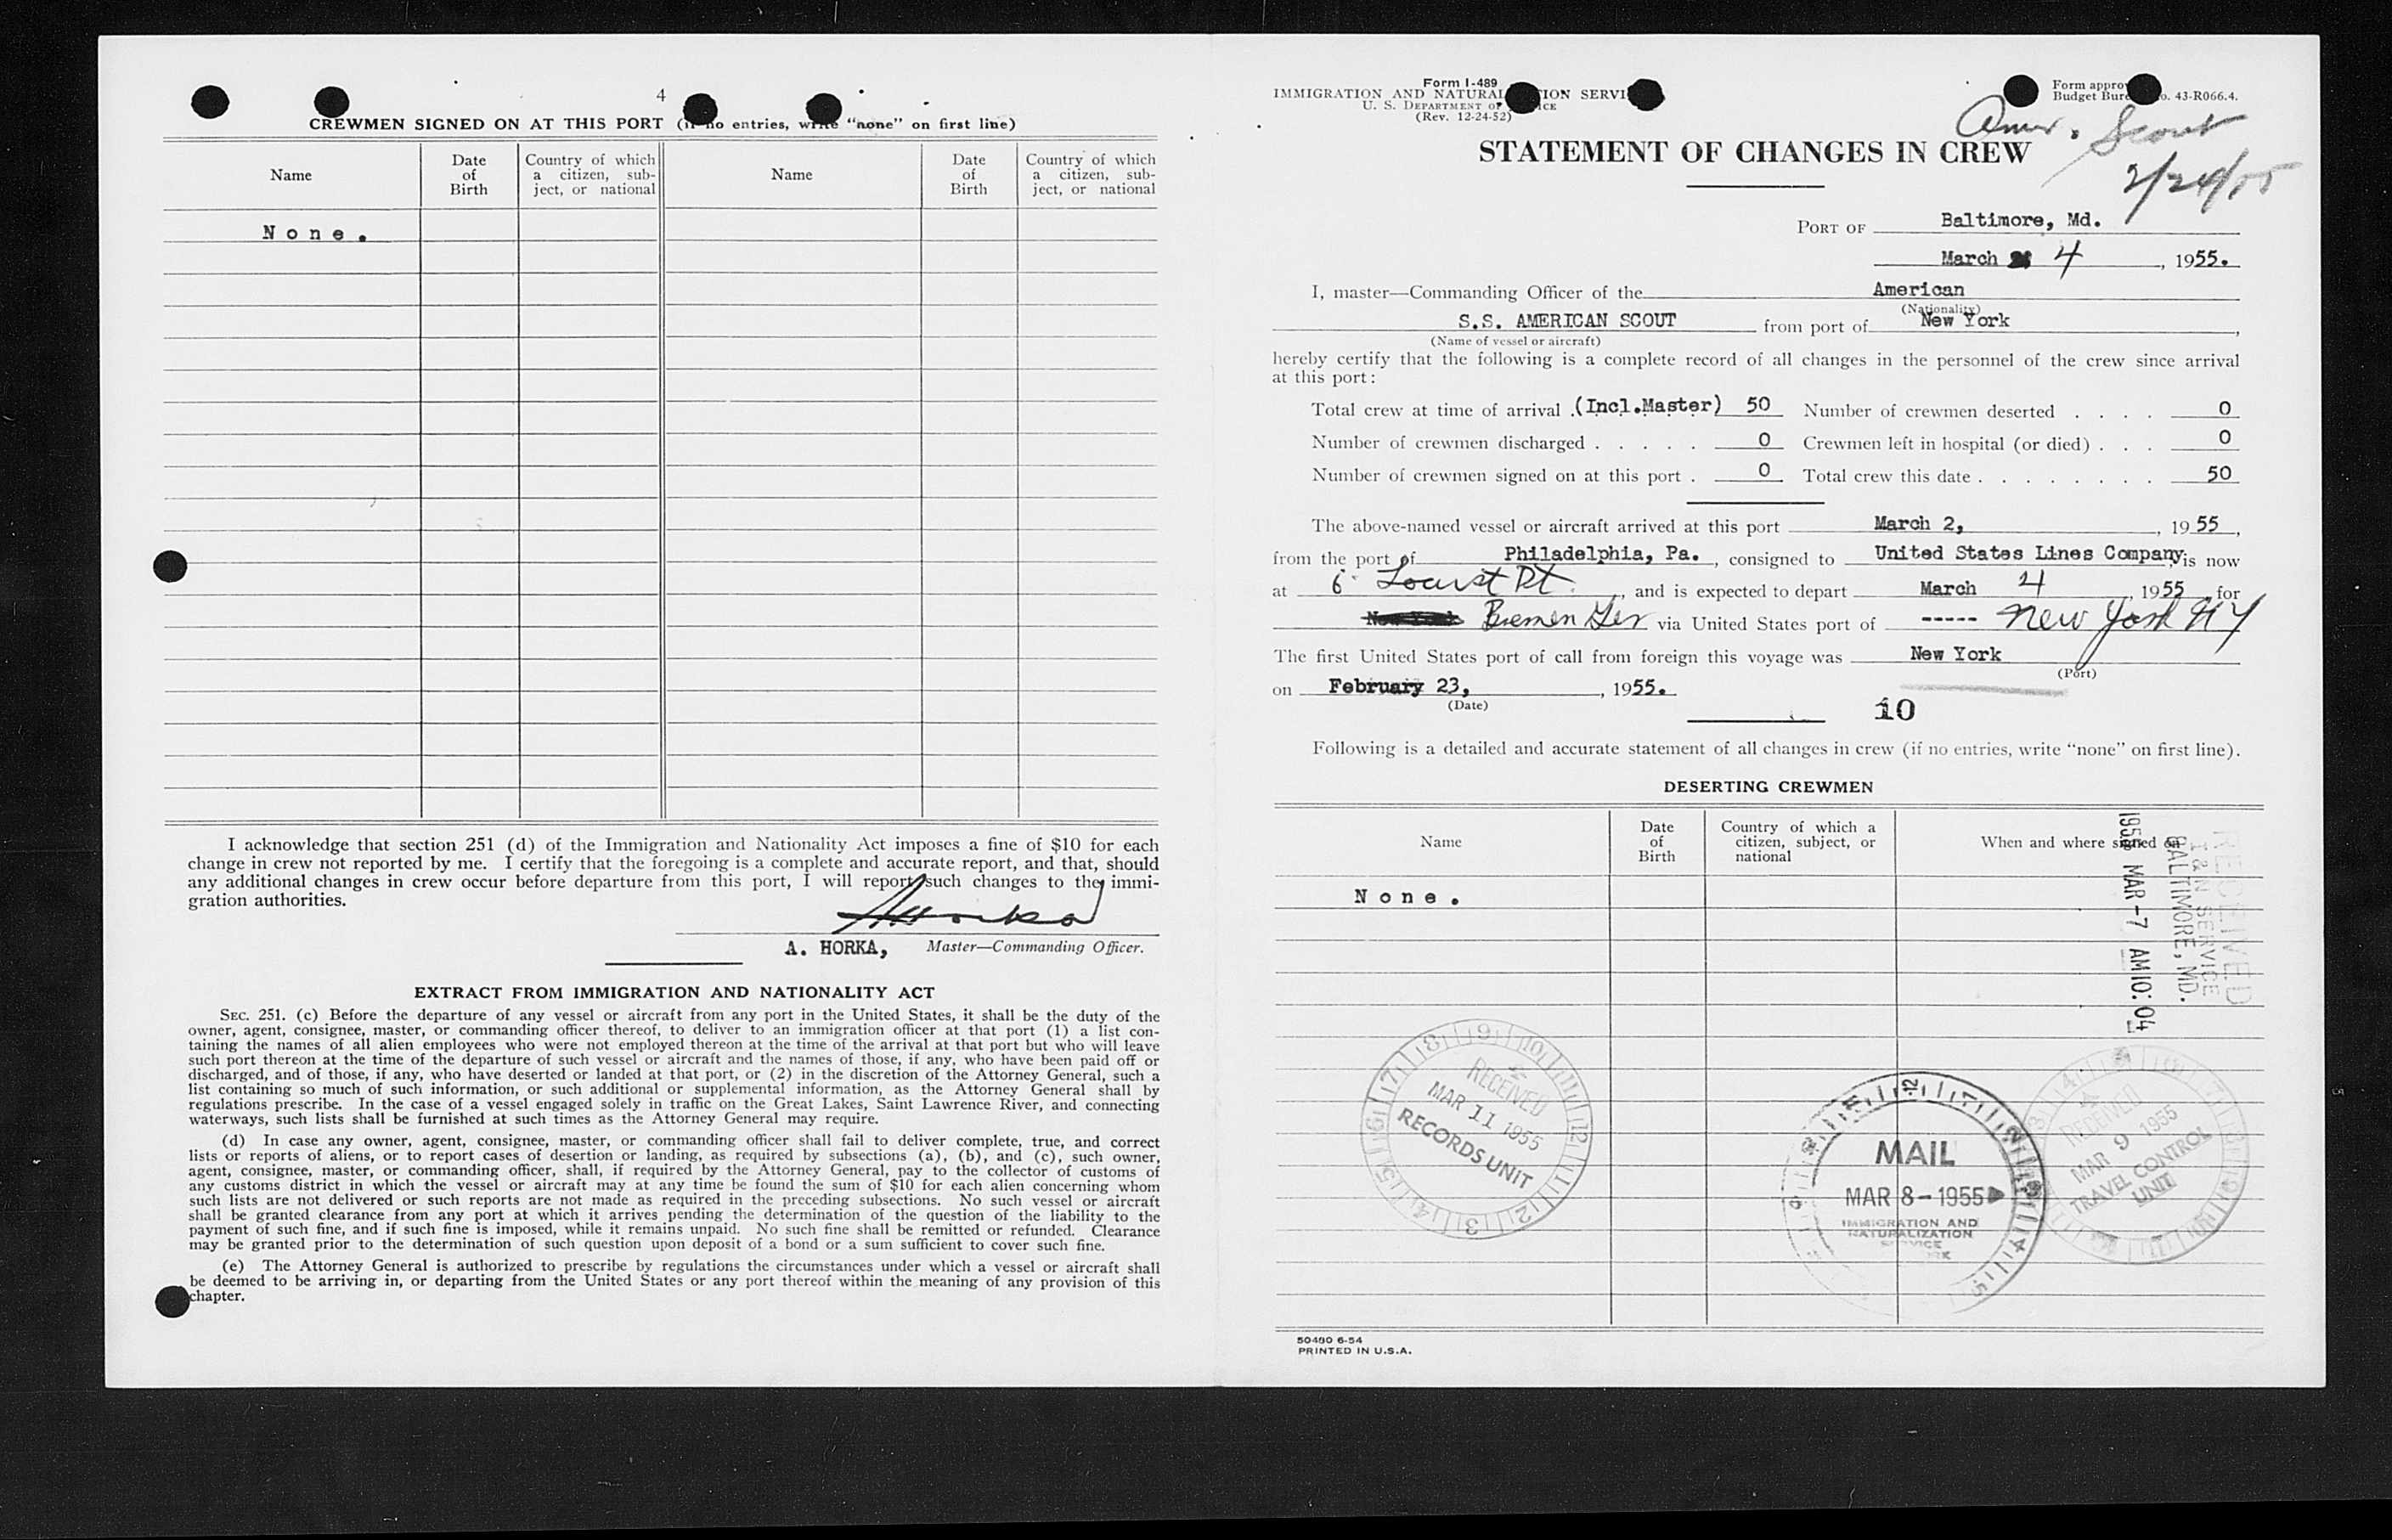 4
CREWMEN SIGNED ON AT THIS PORT (if no entries, write "none" on first line)
Name
Date of Birth
Country of which a citizen, subject, or national
Name
Date of Birth
Country of which a citizen, subject, or national
None.
I acknowledge that section 251 (d) of the Immigration and Nationality Act imposes a fine of $10 for each
change in crew not reported by me. I certify that the foregoing is a complete and accurate report, and that, should
any additional changes in crew occur before departure from this port, I will report such changes to the immi-
gration authorities.
A Horka
A. HORKA, Master—Commanding Officer.
EXTRACT FROM IMMIGRATION AND NATIONALITY ACT
SEC. 251. (c) Before the departure of any vessel or aircraft from any port in the United States, it shall be the duty of the
owner, agent, consignee, master, or commanding officer thereof, to deliver to an immigration officer at that port (1) a list con-
taining the names of all alien employees who were not employed thereon at the time of the arrival at that port but who will leave
such port thereon at the time of the departure of such vessel or aircraft and the names of those, if any, who have been paid off or
discharged, and of those, if any, who have deserted or landed at that port, or (2) in the discretion of the Attorney General, such a
list containing so much of such information, or such additional or supplemental information, as the Attorney General shall by
regulations prescribe. In the case of a vessel engaged solely in traffic on the Great Lakes, Saint Lawrence River, and connecting
waterways, such lists shall be furnished at such times as the Attorney General may require.
(d) In case any owner, agent, consignee, master, or commanding officer shall fail to deliver complete, true, and correct
lists or reports of aliens, or to report cases of desertion or landing, as required by subsections (a), (b), and (c), such owner,
agent, consignee, master, or commanding officer, shall, if required by the Attorney General, pay to the collector of customs of
any customs district in which the vessel or aircraft may at any time be found the sum of $10 for each alien concerning whom
such lists are not delivered or such reports are not made as required in the preceding subsections. No such vessel or aircraft
shall be granted clearance from any port at which it arrives pending the determination of the question of the liability to the
payment of such fine, and if such fine is imposed, while it remains unpaid. No such fine shall be remitted or refunded. Clearance
may be granted prior to the determination of such question upon deposit of a bond or a sum sufficient to cover such fine.
(e) The Attorney General is authorized to prescribe by regulations the circumstances under which a vessel or aircraft shall
be deemed to be arriving in, or departing from the United States or any port thereof within the meaning of any provision of this
chapter.
Form I-489
IMMIGRATION AND NATURALIZATION SERVICE
U. S. DEPARTMENT OF JUSTICE
(Rev. 12-24-52)
Form approved
Budget Bureau No. 43-R066.4.
Amer. Scout
2/24/55
STATEMENT OF CHANGES IN CREW
PORT OF Baltimore, Md.
March 4, 1955.
I, master—Commanding Officer of the American
(Nationality)
S.S. AMERICAN SCOUT from port of New York,
(Name of vessel or aircraft)
hereby certify that the following is a complete record of all changes in the personnel of the crew since arrival
at this port:
Total crew at time of arrival .(Incl.Master) 50 Number of crewmen deserted . . . . 0
Number of crewmen discharged . . . . . 0 Crewmen left in hospital (or died) . . . 0
Number of crewmen signed on at this port . 0 Total crew this date . . . . . . . . 50
The above-named vessel or aircraft arrived at this port March 2, , 1955,
from the port of Philadelphia, Pa. , consigned to United States Lines Company, is now
at 6 Locust Pt. , and is expected to depart March 4 , 1955, for
New York Bremen Ger via United States port of ----- New York NY
The first United States port of call from foreign this voyage was New York
(Port)
on February 23, , 1955.
(Date)
10
Following is a detailed and accurate statement of all changes in crew (if no entries, write "none" on first line).
DESERTING CREWMEN
Name
Date of Birth
Country of which a citizen, subject, or national
When and where signed on
None.
RECEIVED
I & N SERVICE
BALTIMORE, MD.
MAR -7 AM 10:04
RECEIVED
MAR 11 1955
RECORDS UNIT
MAIL
MAR 8-1955
IMMIGRATION AND
NATURALIZATION
SERVICE
RECEIVED
MAR 9 1955
TRAVEL CONTROL
UNIT
50480 6-54
PRINTED IN U.S.A.